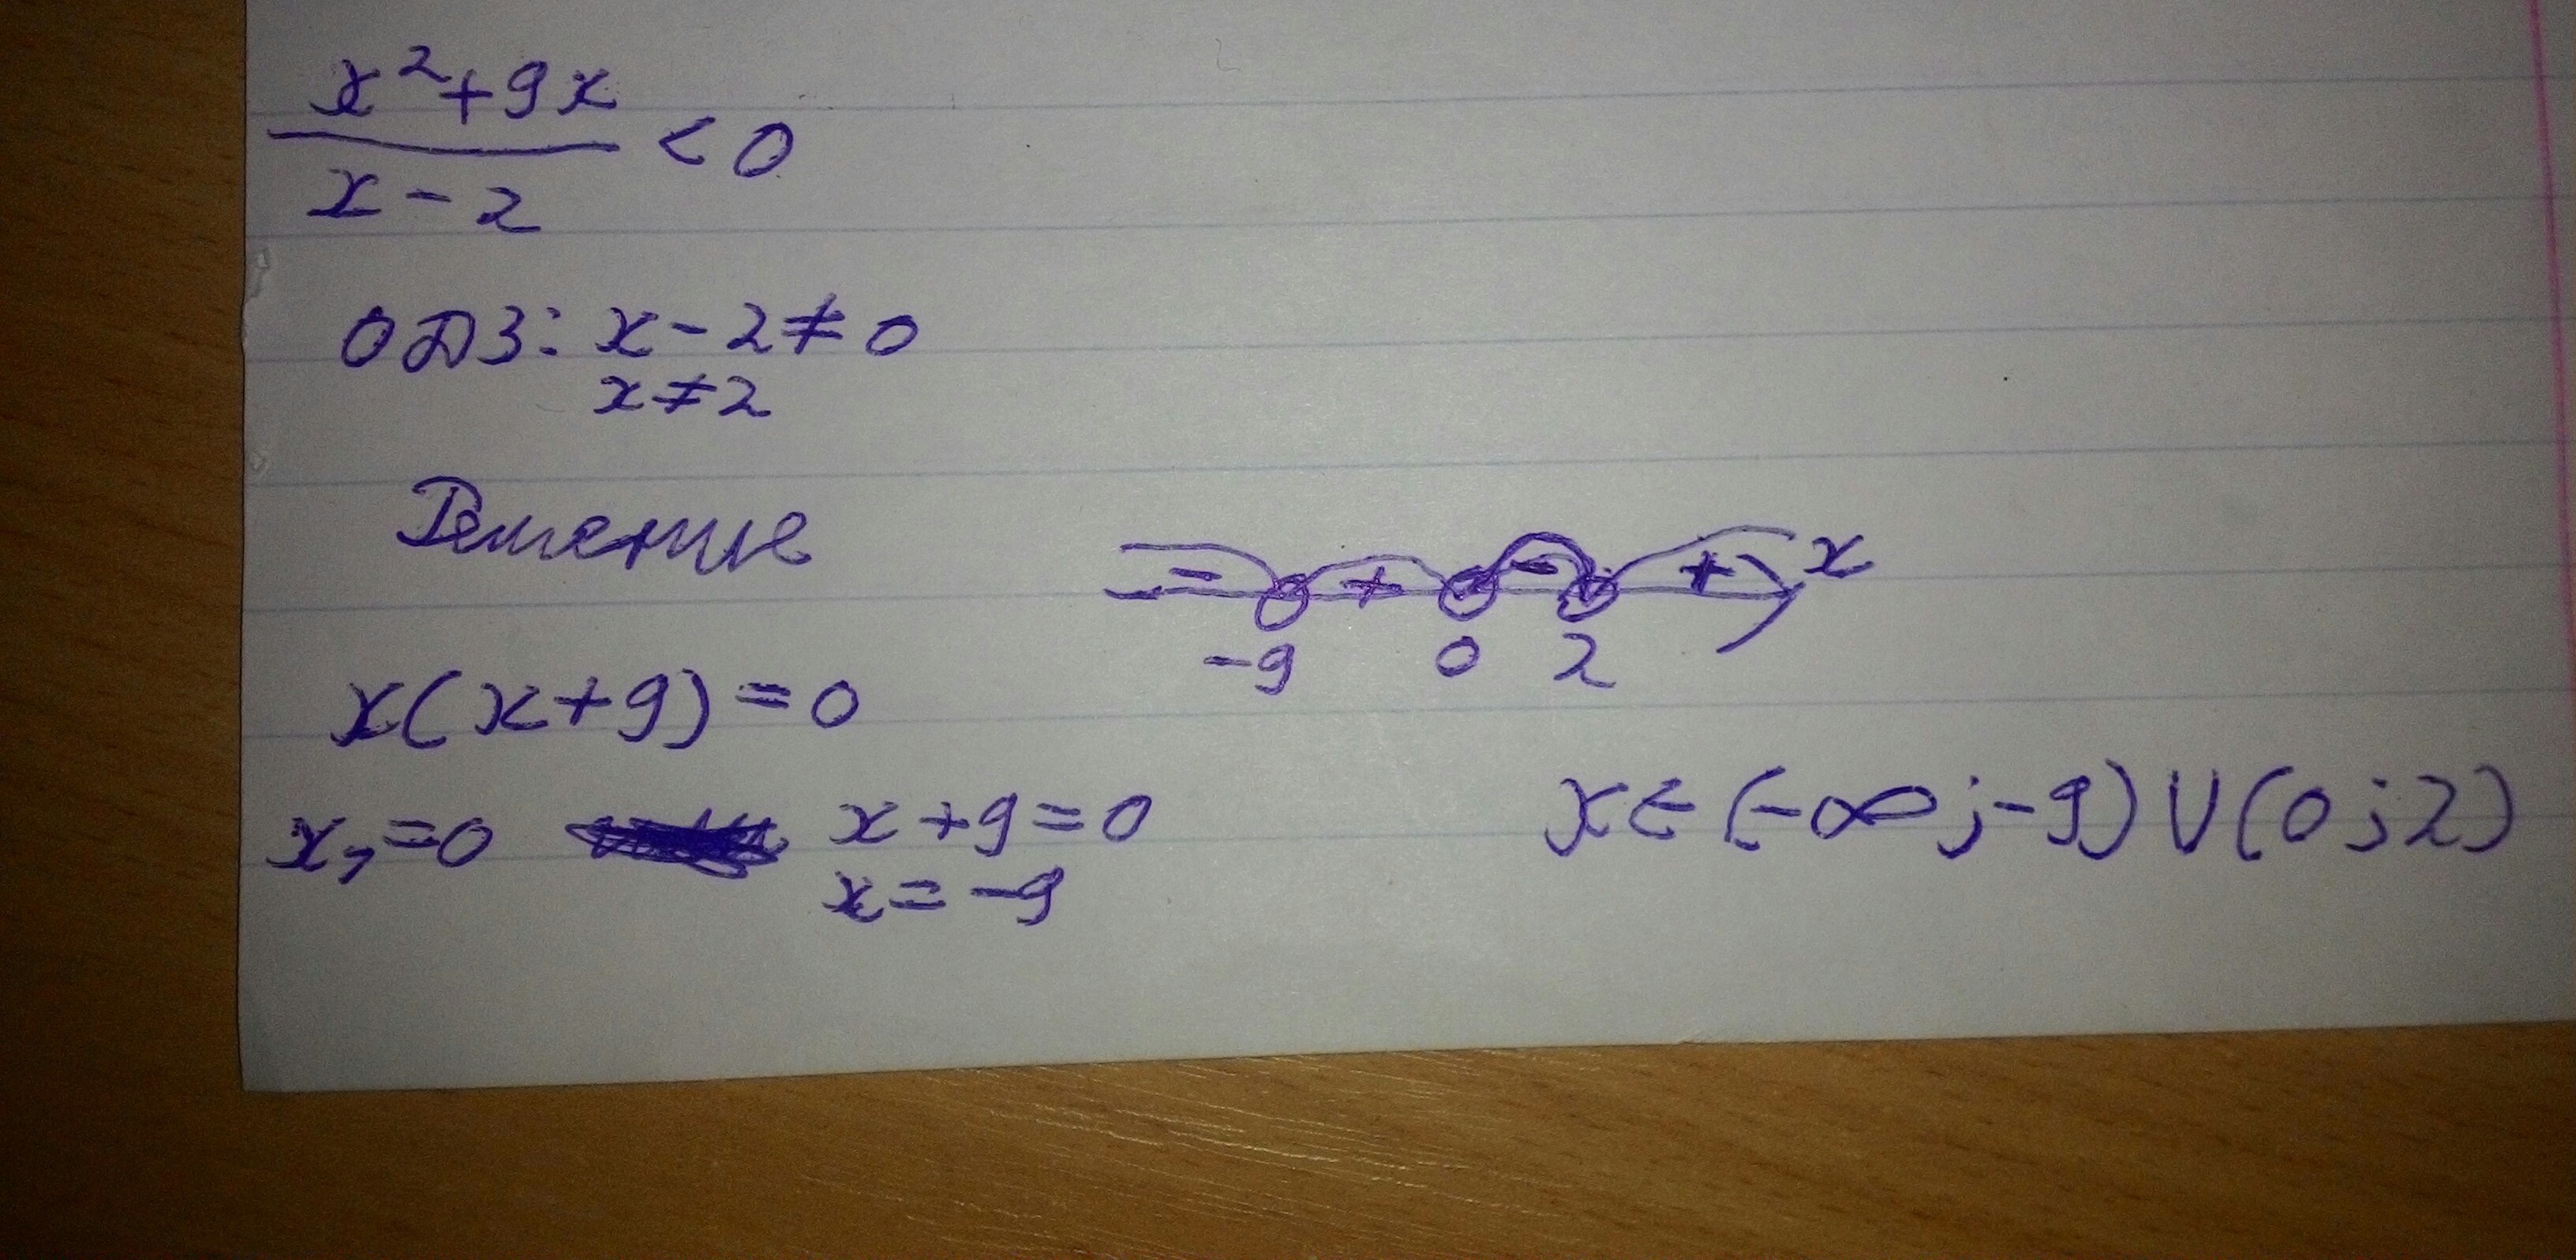 x²+9x
―――― < 0
x-2
ОДЗ: x-2≠0
x≠2
Решение
x(x+9)=0
x₁=0 x+9=0
x=-9
- + - + x
-9 0 2
x∈(-∞;-9)∪(0;2)